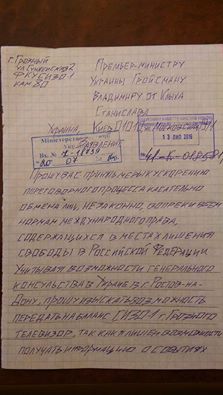 г. Грозный
ФКУ СИЗО 1
кам 80
Премьер-министру
Украины Гройсману
Владимиру от Клыха
Станислава
Украина,
Министерство
13 2016
Прошу Вас принять меры к ускорению
переговорного процесса касательно
обмена лиц, незаконно, вопреки всем
нормам международного права,
содержащихся в местах лишения
свободы в Российской Федерации
Учитывая возможности генерального
консульства в Украине в г. Ростов-на-
Дону, прошу изыскать возможность
передать на баланс СИЗО 1 г. Грозного
телевизор, так как я лишен возможности
получать информацию о событиях